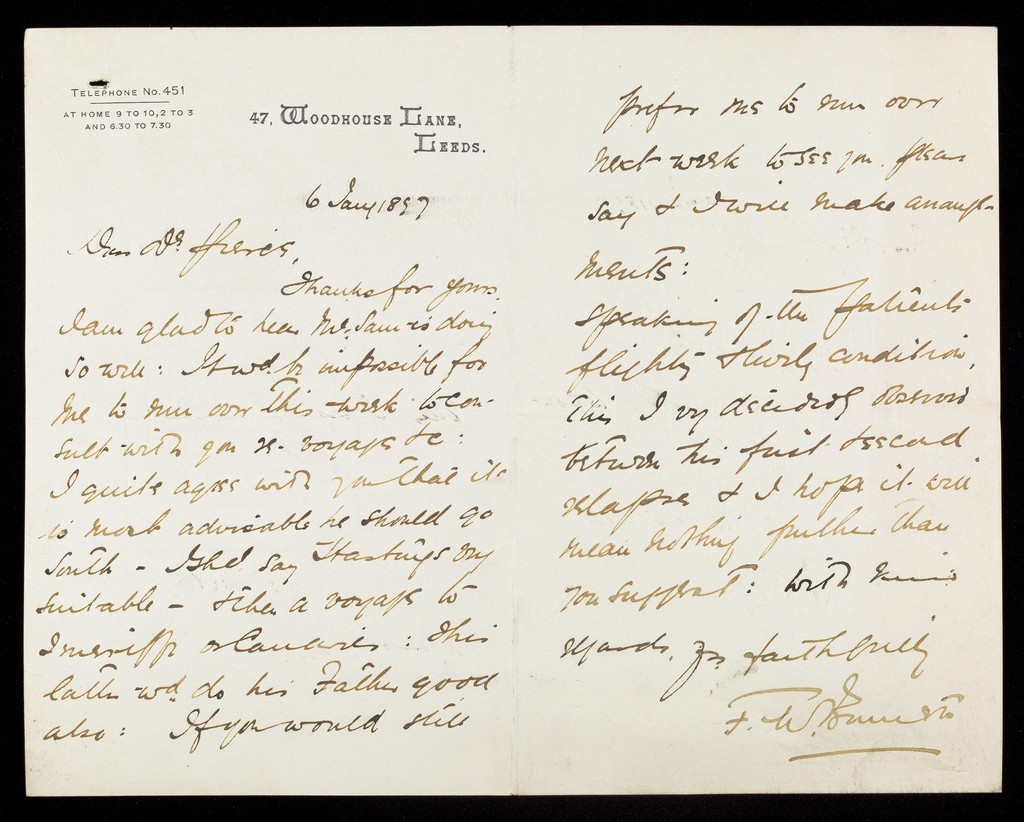 TELEPHONE No. 451
AT HOME 9 TO 10, 2 TO 3
AND 6.30 TO 7.30
47, WOODHOUSE LANE,
LEEDS.
6 Jany 1897
Dear Dr.
Thanks for yours.
I am glad to hear Mr. Sam is doing
so well: It wd. be impossible for
me to run over this week to con-
sult with you re voyage &c:
I quite agree with you that it
is most advisable he should go
South - I shd. say Hastings vy
suitable - & then a voyage to
Teneriffe or Canaries: This
latter wd. do his Father good
also: If you would still
prefer me to run over
next week to see you, please
say & I will make arrange-
ments:
Speaking of the patients
flighty & lively condition,
this I vy decidedly observed
between his first & second
relapses & I hope it will
mean nothing further than
you suggest: With kind
regards, yrs faithfully
F. W.